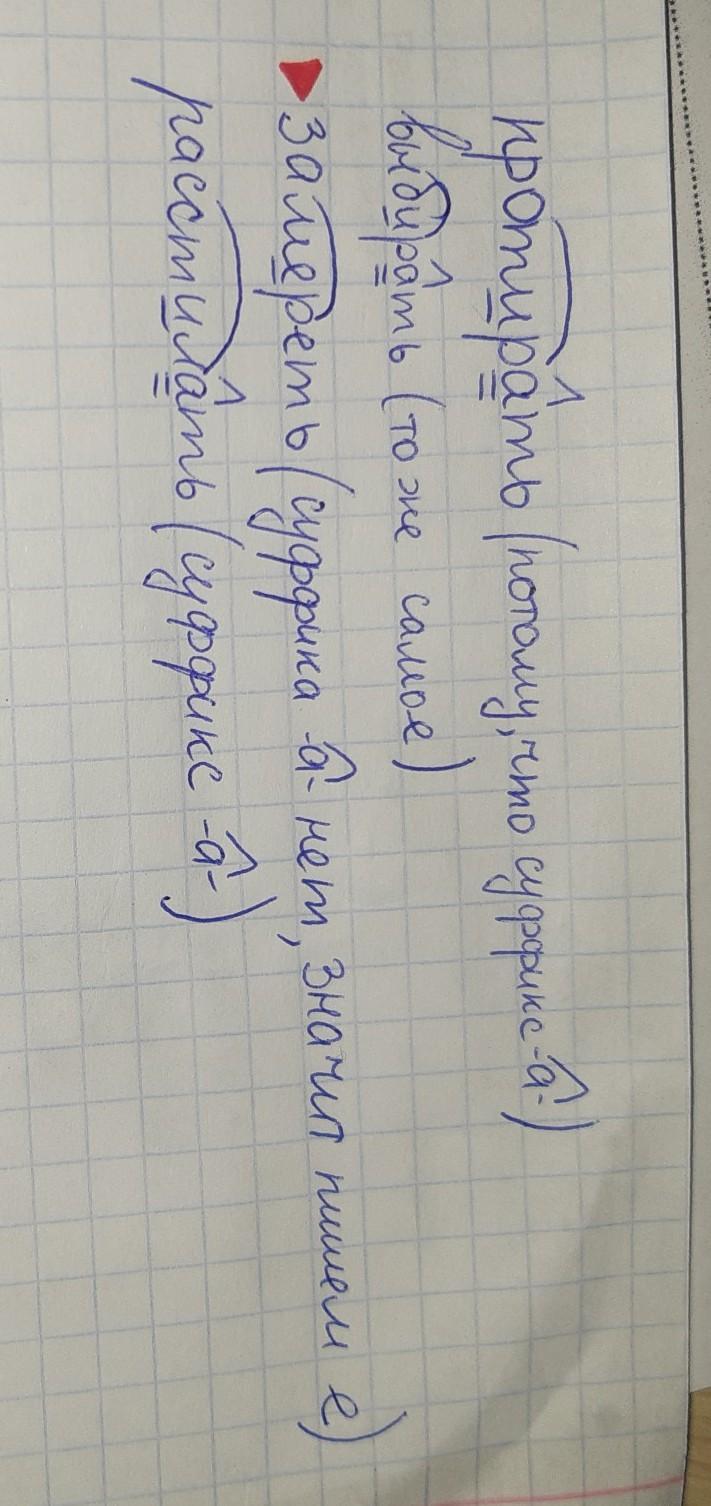 протирать (потому, что суффикс -а-)
выбирать (то же самое)
замереть (суффикса -а- нет, значит пишем е)
расстилать (суффикс -а-)